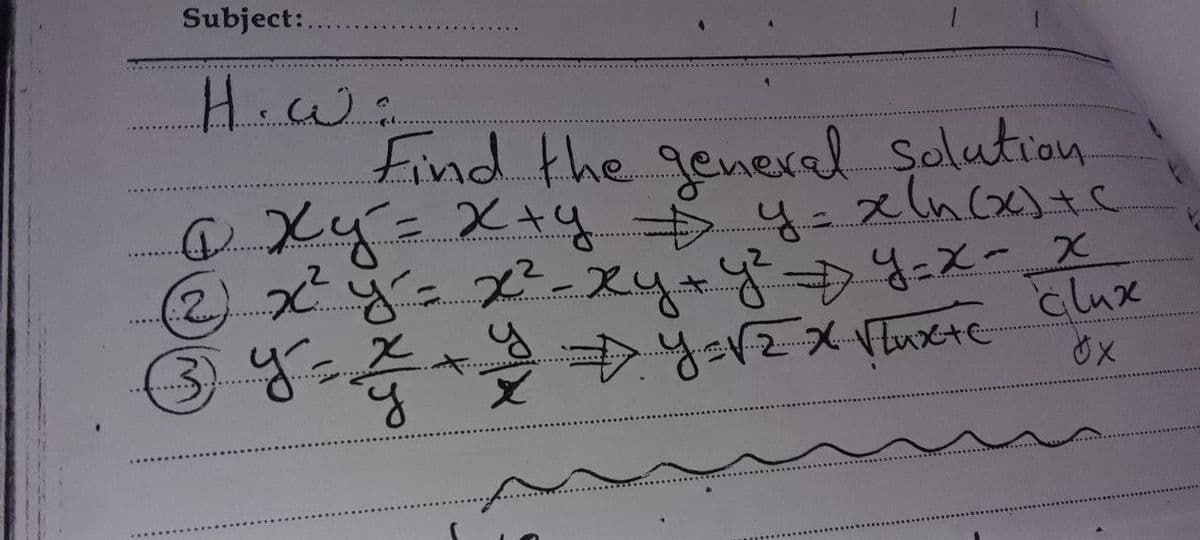 Subject:
H.w:
Find the general solution
① xy' = x+y ⇒ y = x ln(x)+c
② x² y' = x² - xy + y² ⇒ y = x - x / c lnx
③ y' = x/y + y/x ⇒ y = √2 x √lnx+c